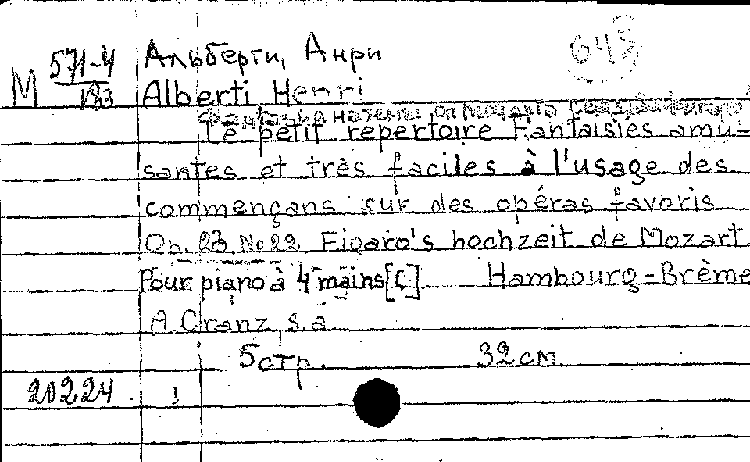 Альберти, Анри
643
М 571-4
133
Alberti Henri
Le petit repertoire Fantaisies amu=
santes et très faciles à l'usage des
commençans sur des opéras favoris
Op. 23. No 22 Figaro's hochzeit de Mozart
Pour piano à 4 mains [C] Hambourg=Brême
A. Cranz s.a
5 стр. 32 см
20224 1